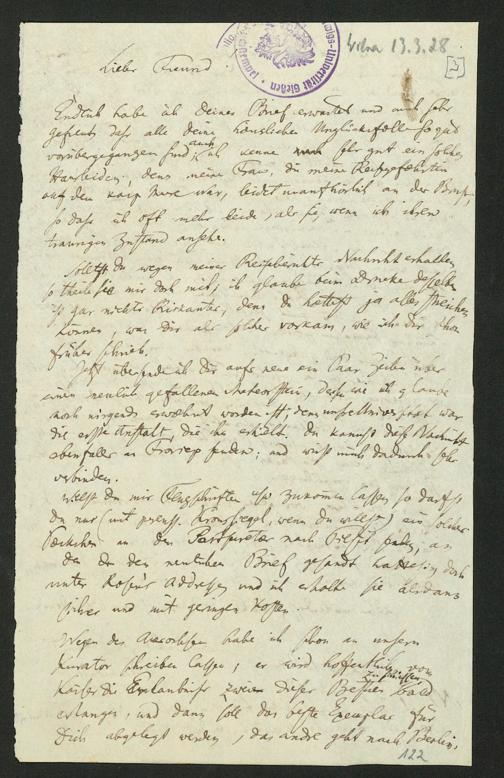 Wilna 13.3.28
2
Universität Gießen
Lieber Freund
Endlich habe ich deinen Brief erwartet und mich sehr
gefreut daß alle deine häuslichen Unglücksfälle so gut
vorübergegangen sind, auch ich kenne sehr gut ein solches
Hausleiden; denn meine Frau, die meine Reisegefährtin
auf dem war, leidet unaufhörlich an der Brust,
so daß ich oft mehr leide, als sie, wenn ich ihren
traurigen Zustand ansehe.
Solltest du wegen meiner Reiseberichte Nachricht erhalten
so theile sie mir doch mit; ich glaube beim Drucke desselben
ist gar nichts, denn du hättest ja alles streichen
können, was dir als solcher vorkam, wie ich dir schon
früher schrieb.
Jetzt übersende ich dir aufs neue ein Paar Zeilen über
einen neulich gefallenen Meteorstein, der wie ich glaube
noch nirgends erwähnt worden ist; denn unsere Universität war
die erste Anstalt, die ihn erhielt. Du kannst diese Nachricht
ebenfalls an Froriep senden; und wirst mich dadurch sehr
verbinden.
Willst du mir Flugschriften zukommen lassen so darfst
du nur (mit preuss. Kronssiegel, wenn du willst) ein
Päckchen an den nach senden, an
den du den neulichen Brief gesandt hattest, doch
unter Addresse und ich erhalte sie alsdann
sicher und mit geringen Kosten.
Wegen des Auerochsen habe ich schon an unsern
Kurator schreiben lassen; er wird hoffentlich vom
Kaiser die Erlaubniß zwei dieser Bestien zu schiessen bald
erlangen, und dann soll das beste Exemplar für
Dich abgelegt werden, das andre geht nach Berlin.
122